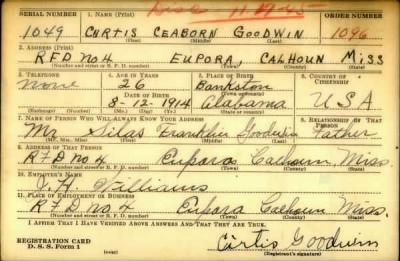 Disc 11 A 45
SERIAL NUMBER 1. NAME (Print) ORDER NUMBER
1049 CURTIS CEABORN GOODWIN 1096
(First) (Middle) (Last)
2. ADDRESS (Print)
RFD NO 4 EUPORA, CALHOUN MISS
(Number and street or R. F. D. number) (Town) (County) (State)
3. TELEPHONE 4. AGE IN YEARS 5. PLACE OF BIRTH 6. COUNTRY OF CITIZENSHIP
None 26 Bankston
DATE OF BIRTH (Town or county)
8-12-1914 Alabama USA
(Exchange) (Number) (Mo.) (Day) (Yr.) (State or country)
7. NAME OF PERSON WHO WILL ALWAYS KNOW YOUR ADDRESS 8. RELATIONSHIP OF THAT PERSON
Mr. Silas Franklin Goodwin Father
(Mr., Mrs., Miss) (First) (Middle) (Last)
9. ADDRESS OF THAT PERSON
RFD no 4 Eupora Calhoun, Miss.
(Number and street or R. F. D. number) (Town) (County) (State)
10. EMPLOYER'S NAME
J. H. Williams
11. PLACE OF EMPLOYMENT OR BUSINESS
RFD no 4 Eupora Calhoun Miss.
(Number and street or R. F. D. number) (Town) (County) (State)
I AFFIRM THAT I HAVE VERIFIED ABOVE ANSWERS AND THAT THEY ARE TRUE.
REGISTRATION CARD
D. S. S. Form 1 Curtis Goodwin
(Registrant's signature)